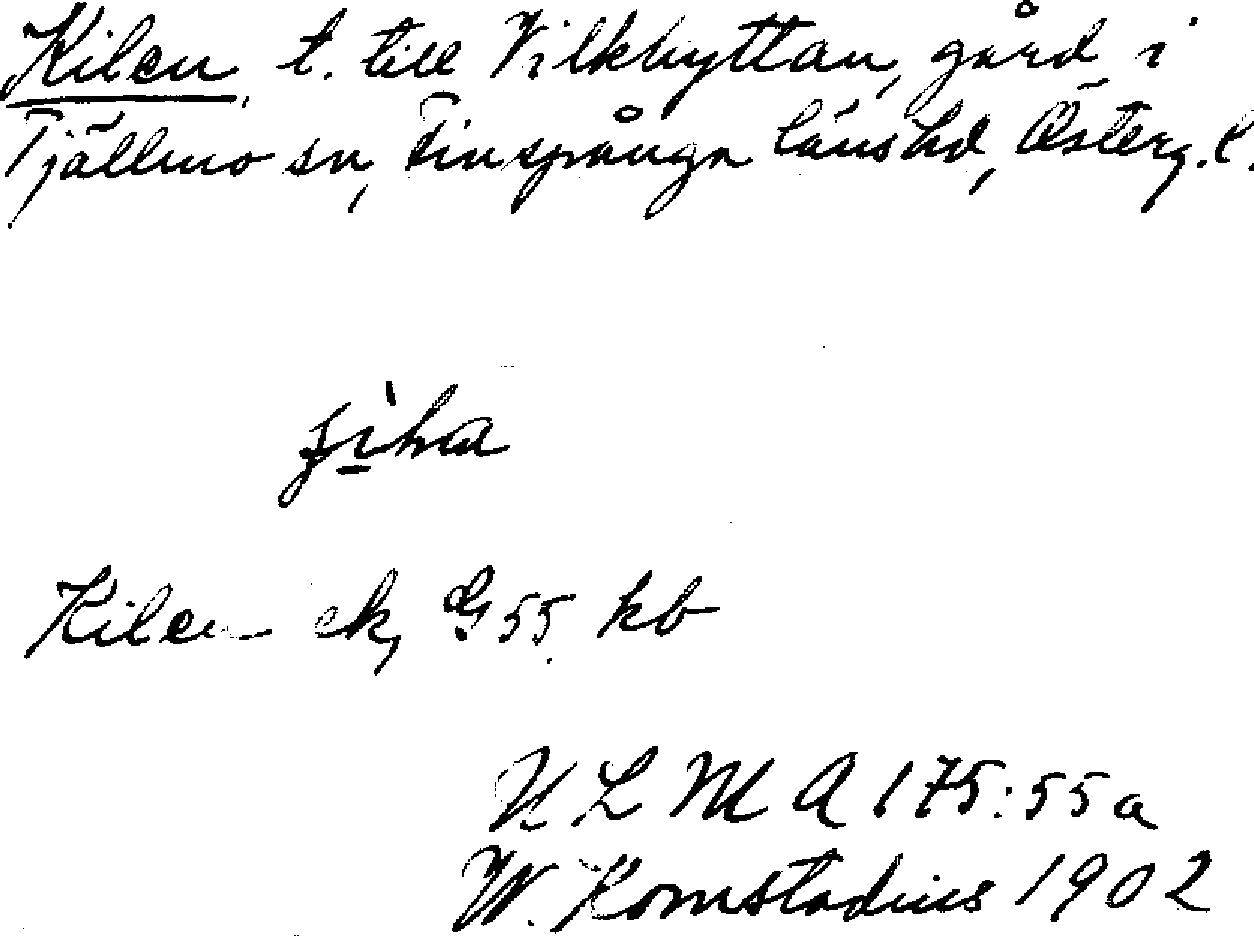 Kilen, t. till Vilkhyttan, gård i
Tjällmo sn, Finspånga läns hd, Österg. l.
Kilen ek, G 55 kb
U L M A 175:55a
W. Komstadius 1902